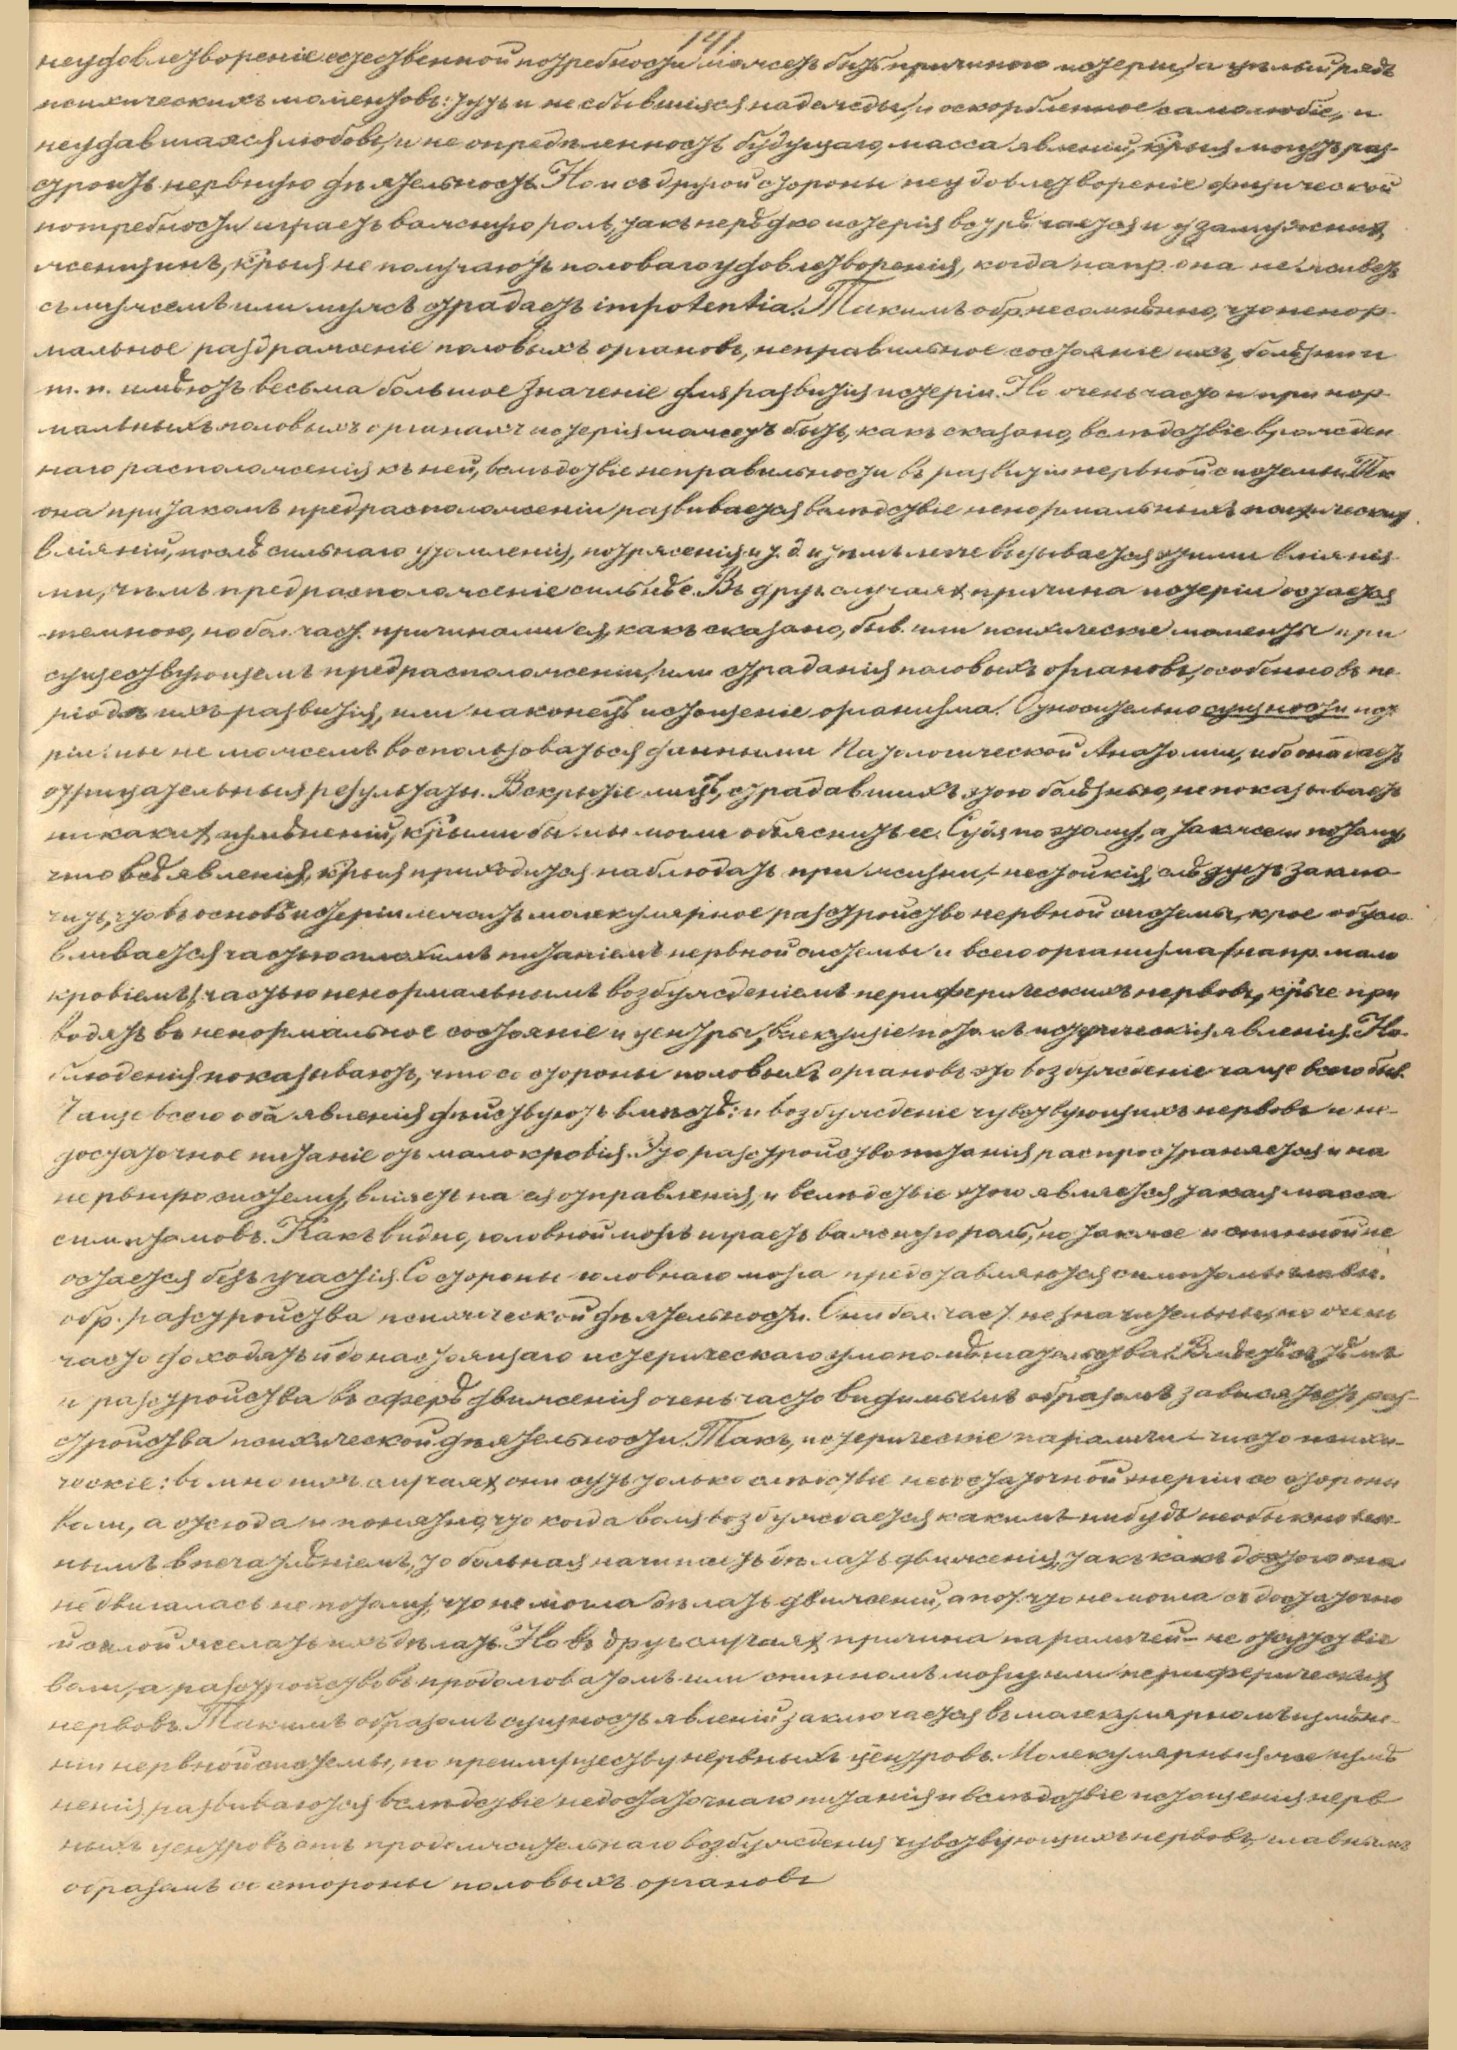 141
неудовлетвореніе естественной потребности можетъ быть причиною истеріи, а цѣлый рядъ
психическихъ моментовъ: тутъ и не сбывшіяся надежды, и оскорбленное самолюбіе, и
неудавшаяся любовь, и не опредѣленность будущаго, масса явленій, крыя могутъ раз-
строить нервную дѣятельность. Но и съ другой стороны неудовлетвореніе физической
потребности играетъ важную роль, такъ нерѣдко истерія встрѣчается и у замужнихъ
женщинъ, крыя не получаютъ половаго удовлетворенія, когда напр. она не живетъ
съ мужемъ или мужъ страдаетъ impotentia. Такимъ обр. несомнѣнно, что ненор-
мальное раздраженіе половыхъ органовъ, неправильное состояніе ихъ, болѣзни и
т. п. имѣютъ весьма большое значеніе для развитія истеріи. Но очень часто и при нор-
мальныхъ половыхъ органахъ истерія можетъ быть, какъ сказано, вслѣдствіе врожден
наго расположенія къ ней, вслѣдствіе неправильности въ развитіи нервной системы. Тк
она при такомъ предрасположеніи развивается вслѣдствіе ненормальныхъ психическихъ
вліяній, послѣ сильнаго утомленія, потрясенія и т. д. и тѣмъ легче вызывается этими вліянія
ми, чѣмъ предрасположеніе сильнѣе. Въ друг. случаяхъ причина истеріи остается
темною, но бол. част. причинами ея, какъ сказано, быв. или психическіе моменты при
существующемъ предрасположеніи, или страданія половыхъ органовъ, особенно въ пе-
ріодѣ ихъ развитія, или наконецъ истощеніе организма. Относительно сущности исте
ріи мы не можемъ воспользоваться данными Патологической Анатоміи, ибо она даетъ
отрицательныя результаты. Вскрытіе лицъ, страдавшихъ этою болѣзнью, не показываетъ
никакихъ измѣненій, крыми бы мы могли объяснить ее. Судя по этому, а также и потому
что всѣ явленія, крыя приходится наблюдать при жизни, - нестойкія, слѣдуетъ заклю
чить, что въ основѣ истеріи лежитъ молекулярное разстройство нервной системы, крое обусло
вливается частью плохимъ питаніемъ нервной системы и всего организма (напр. мало
кровіемъ), частью ненормальнымъ возбужденіемъ периферическихъ нервовъ, крые при
водятъ въ ненормальное состояніе и центры, влекущіе потомъ истерическія явленія. На
блюденія показываютъ, что со стороны половыхъ органовъ это возбужденіе чаще всего быв.
Чаще всего оба явленія дѣйствуютъ вмѣстѣ: и возбужденіе чувствующихъ нервовъ и не-
достаточное питаніе отъ малокровія. Это разстройство питанія распространяется и на
нервную систему, вліяетъ на ея отправленія, и вслѣдствіе этого является такая масса
симптомовъ. Какъ видно, головной мозгъ играетъ важную роль, но также и спинной не
остается безъ участія. Со стороны головнаго мозга представляются симптомы главн.
обр. разстройства психической дѣятельности. Они бол. част. незначительны, но очень
часто доходятъ и до настоящаго истерическаго умопомѣшательства. Вмѣстѣ съ тѣмъ
и разстройства въ сферѣ движенія очень часто видимымъ образомъ зависятъ отъ раз-
стройства психической дѣятельности. Такъ, истерическіе параличи - чисто психи-
ческіе: во многихъ случаяхъ они суть только слѣдствіе недостаточной энергіи со стороны
воли, а отсюда и понятно, что когда воля возбуждается какимъ нибудь необыкновен-
нымъ впечатлѣніемъ, то больная начинаетъ дѣлать движенія, такъ какъ до этого она
не двигалась не потому, что не могла дѣлать движеній, а пот. что не могла съ достаточно
й силой желать ихъ дѣлать. Но въ друг. случаяхъ причина параличей - не отсутствіе
воли, а разстройство въ продолговатомъ или спинномъ мозгу или периферическихъ
нервовъ. Такимъ образомъ сущность явленій заключается въ молекулярномъ измѣне-
ніи нервной системы, по преимуществу нервныхъ центровъ. Молекулярныя же измѣ
ненія развиваются вслѣдствіе недостаточнаго питанія и вслѣдствіе истощенія нерв
ныхъ центровъ отъ продолжительнаго возбужденія чувствующихъ нервовъ, главнымъ
образомъ со стороны половыхъ органовъ